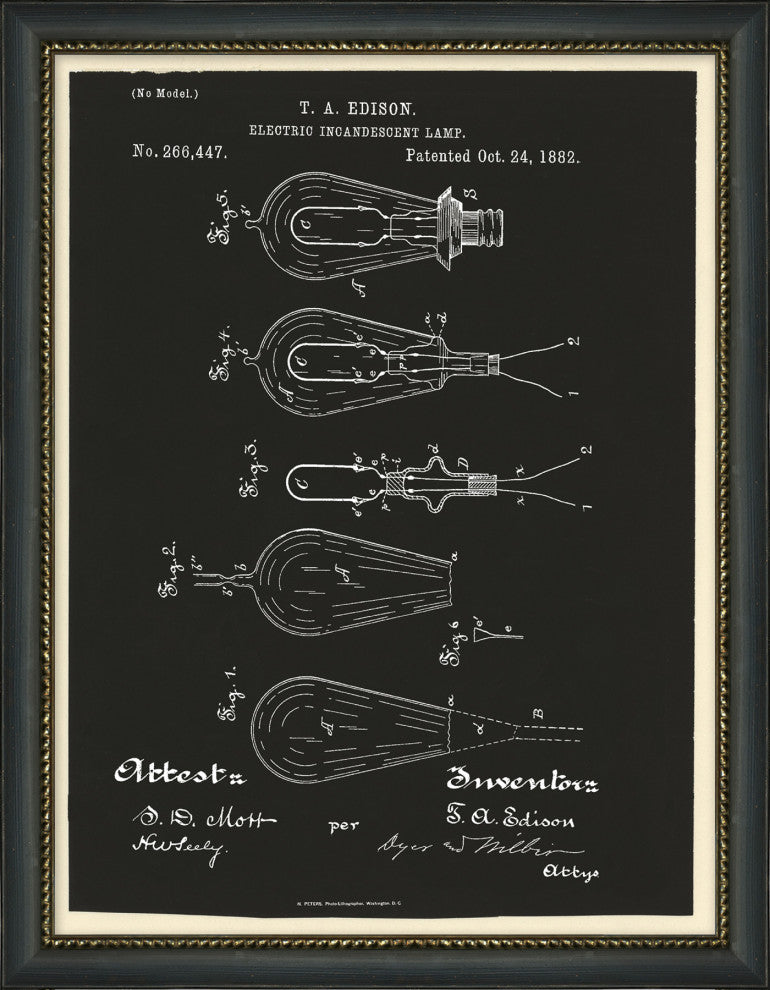 (No Model.)
T. A. EDISON.
ELECTRIC INCANDESCENT LAMP.
No. 266,447.
Patented Oct. 24, 1882.
Fig. 5.
b'
C
S
A
Fig. 4.
b'
A
C
e'
e'
e
e
p
a
d
2
1
Fig. 3.
C
e'
e'
e
e
p
p
i
d
D
x
x
2
1
Fig. 2.
b''
b'
b
A
a
Fig 6
e'
e
Fig. 1.
A
a
d
B
Attest:
Inventor:
S. D. Mott
T. A. Edison
H W Seely.
per
Dyer and Wilber
Attys
N. PETERS, Photo-Lithographer, Washington, D. C.